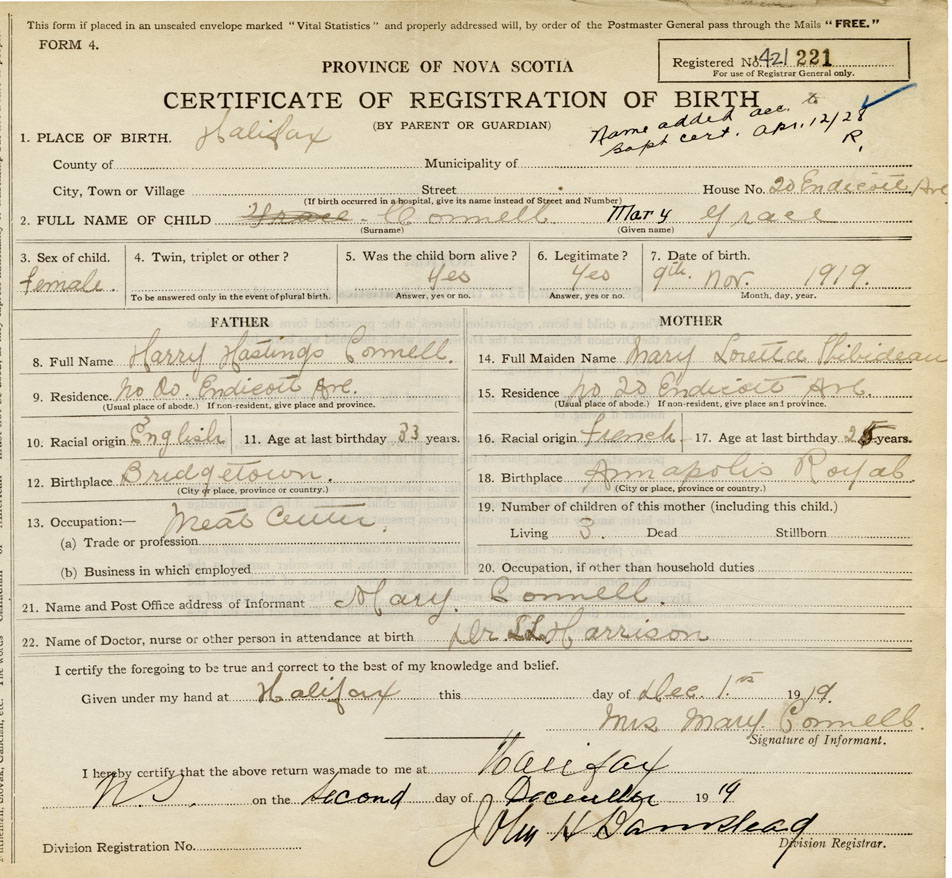 This form if placed in an unsealed envelope marked "Vital Statistics" and properly addressed will, by order of the Postmaster General pass through the Mails "FREE."
FORM 4.
Registered No. 421 221
For use of Registrar General only.
PROVINCE OF NOVA SCOTIA
CERTIFICATE OF REGISTRATION OF BIRTH
(BY PARENT OR GUARDIAN)
Name added acc. to
Bapt cert. Apr. 12/28
R.
1. PLACE OF BIRTH. Halifax
County of Municipality of
City, Town or Village Street House No. 20 Endicott Ave
(If birth occurred in a hospital, give its name instead of Street and Number)
2. FULL NAME OF CHILD Grace Connell Mary Grace
(Surname) (Given name)
3. Sex of child. 4. Twin, triplet or other? 5. Was the child born alive? 6. Legitimate? 7. Date of birth.
Female. Yes Yes 9th Nov. 1919.
To be answered only in the event of plural birth. Answer, yes or no. Answer, yes or no. Month, day, year.
FATHER MOTHER
8. Full Name Harry Hastings Connell. 14. Full Maiden Name Mary Loretta Thibideau
9. Residence. No 20. Endicott Ave. 15. Residence No 20 Endicott Ave.
(Usual place of abode.) If non-resident, give place and province. (Usual place of abode.) If non-resident, give place and province.
10. Racial origin English 11. Age at last birthday 33 years. 16. Racial origin French 17. Age at last birthday 25 years.
12. Birthplace Bridgetown. 18. Birthplace Annapolis Royal
(City or place, province or country.) (City or place, province or country.)
13. Occupation:— Meat Cutter. 19. Number of children of this mother (including this child.)
(a) Trade or profession Living 3. Dead Stillborn
(b) Business in which employed 20. Occupation, if other than household duties
21. Name and Post Office address of Informant Mary Connell.
22. Name of Doctor, nurse or other person in attendance at birth Dr. Harrison
I certify the foregoing to be true and correct to the best of my knowledge and belief.
Given under my hand at Halifax this day of Dec. 1st 1919.
Mrs Mary Connell.
Signature of Informant.
I hereby certify that the above return was made to me at Halifax
N.S. on the second day of December 1919
John H Barnstead
Division Registrar.
Division Registration No.